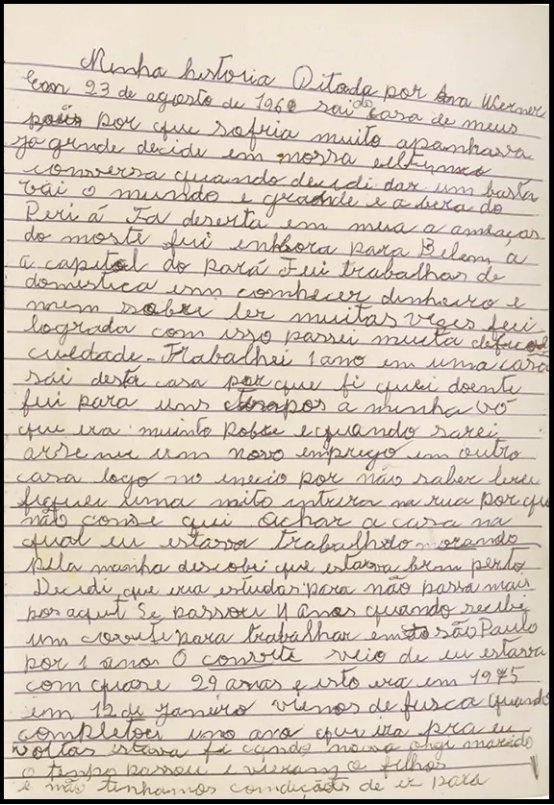 Minha historia Ditada por Ana Werner
Em 23 de agosto de 1960 sai do casa de meus
pais por que sofria muito apanhava
ja grnde decide em nossa
conversa quando decidi dar um basta
vai o mundo e grande e a bera do
deserta em meu a ameaças
do morte fui enbhora para Belem, a
a capital do pará Fui trabalhas de
domestica sem conhecer dinheiro e
nem saber ler muitas vezes fui
lograda com isso passei muita
culdade - Trabalhei 1 ano em uma casa
sai desta casa por que fi quei doente
fui para uns tempos a minha vó
que era muinto pobre e quando sarei
um novo emprego em outro
casa logo no inecio por não saber leu
fiquei uma nite intira na rua por que
não conse qui achar a casa na
qual eu estava trabalhdo orando
pela manha descobri que estava bem perto
Decidi que iria estudas para não passa mais
por aquit Se passou 4 anos quando recibi
um convite para trabalhar em são Paulo
por 1 anos O convite veio de eu estava
com quase 29 anos e isto era em 1975
em 12 de janeiro viemos de fusca quando
completou uno ano que ira pra eu
voltas estava fi cando marido
o tempo passou e vieram 2 filhos
e não tenhamos condições de ir para